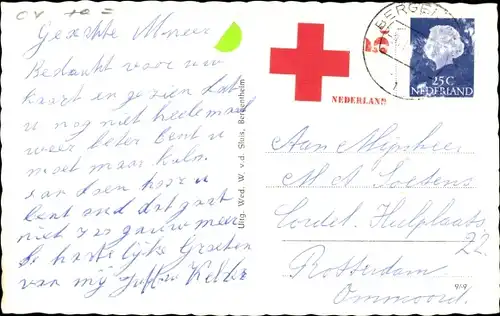 CV
Geachte Meneer
Bedankt voor uw
kaart en gezien dat
u nog niet heelemaal
weer beter bent u
moet maar kalm
aan doen hoor u
bent oud dat gaat
niet zoo gauw meer
de hartelijke Groeten
van mij
Uitg. Wed. W. v.d. Sluis, Bergentheim
NEDERLAND
BERGENT
25C
NEDERLAND
Aan Mijnheer
M A Soetens
Cordel. Hulplaats
22.
Rotterdam
Ommoord.